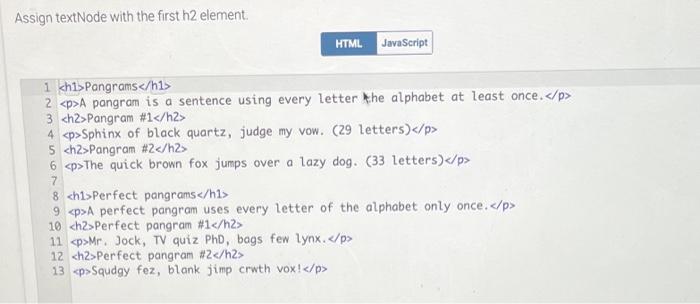 Assign textNode with the first h2 element.
HTML JavaScript
1 <h1>Pangrams</h1>
2 <p>A pangram is a sentence using every letter the alphabet at least once.</p>
3 <h2>Pangram #1</h2>
4 <p>Sphinx of black quartz, judge my vow. (29 letters)</p>
5 <h2>Pangram #2</h2>
6 <p>The quick brown fox jumps over a lazy dog. (33 letters)</p>
7
8 <h1>Perfect pangrams</h1>
9 <p>A perfect pangram uses every letter of the alphabet only once.</p>
10 <h2>Perfect pangram #1</h2>
11 <p>Mr. Jock, TV quiz PhD, bags few lynx.</p>
12 <h2>Perfect pangram #2</h2>
13 <p>Squdgy fez, blank jimp crwth vox!</p>